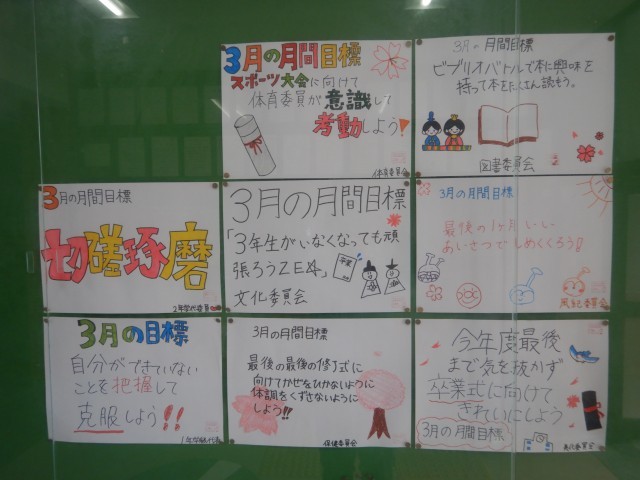 3月の月間目標
スポーツ大会に向けて
体育委員が意識して
考動しよう!
体育委員会
3月の月間目標
ビブリオバトルで本に興味を
持って本をたくさん読もう。
図書委員会
3月の月間目標
切磋琢磨
2年学代委員
3月の月間目標
「3年生がいなくなっても頑
張ろうZE
文化委員会
3月の月間目標
最後の1ヶ月いい
あいさつでしめくくろう!!
風紀委員会
3月の目標
自分ができていない
ことを把握して
克服しよう!!
1年学級代表
3月の月間目標
最後の最後の修了式に
向けてかぜをひかないように
体調をくずさないように
しよう!!
保健委員会
今年度最後
まで気を抜かず
卒業式に向けて
きれいにしよう
3月の月間目標
委員会